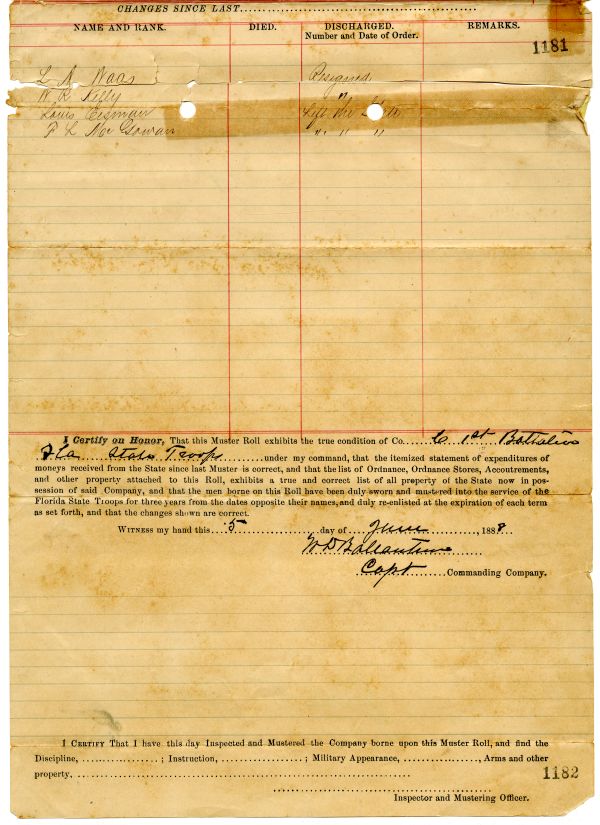 CHANGES SINCE LAST
NAME AND RANK. DIED. DISCHARGED. REMARKS.
Number and Date of Order.
1181
L A Waas Resigned
W. R. Kelly "
Louis Left the State
F L Mc Gowan " " "
I Certify on Honor, That this Muster Roll exhibits the true condition of Co. C 1st Battalion
Fla State Troops under my command, that the itemized statement of expenditures of
moneys received from the State since last Muster is correct, and that the list of Ordnance, Ordnance Stores, Accoutrements,
and other property attached to this Roll, exhibits a true and correct list of all property of the State now in pos-
session of said Company, and that the men borne on this Roll have been duly sworn and mustered into the service of the
Florida State Troops for three years from the dates opposite their names, and duly re-enlisted at the expiration of each term
as set forth, and that the changes shown are correct.
WITNESS my hand this 5 day of June, 1888.
W D Ballantine
Capt Commanding Company.
I CERTIFY That I have this day Inspected and Mustered the Company borne upon this Muster Roll, and find the
Discipline, ; Instruction, ; Military Appearance, , Arms and other
property, 1182
Inspector and Mustering Officer.